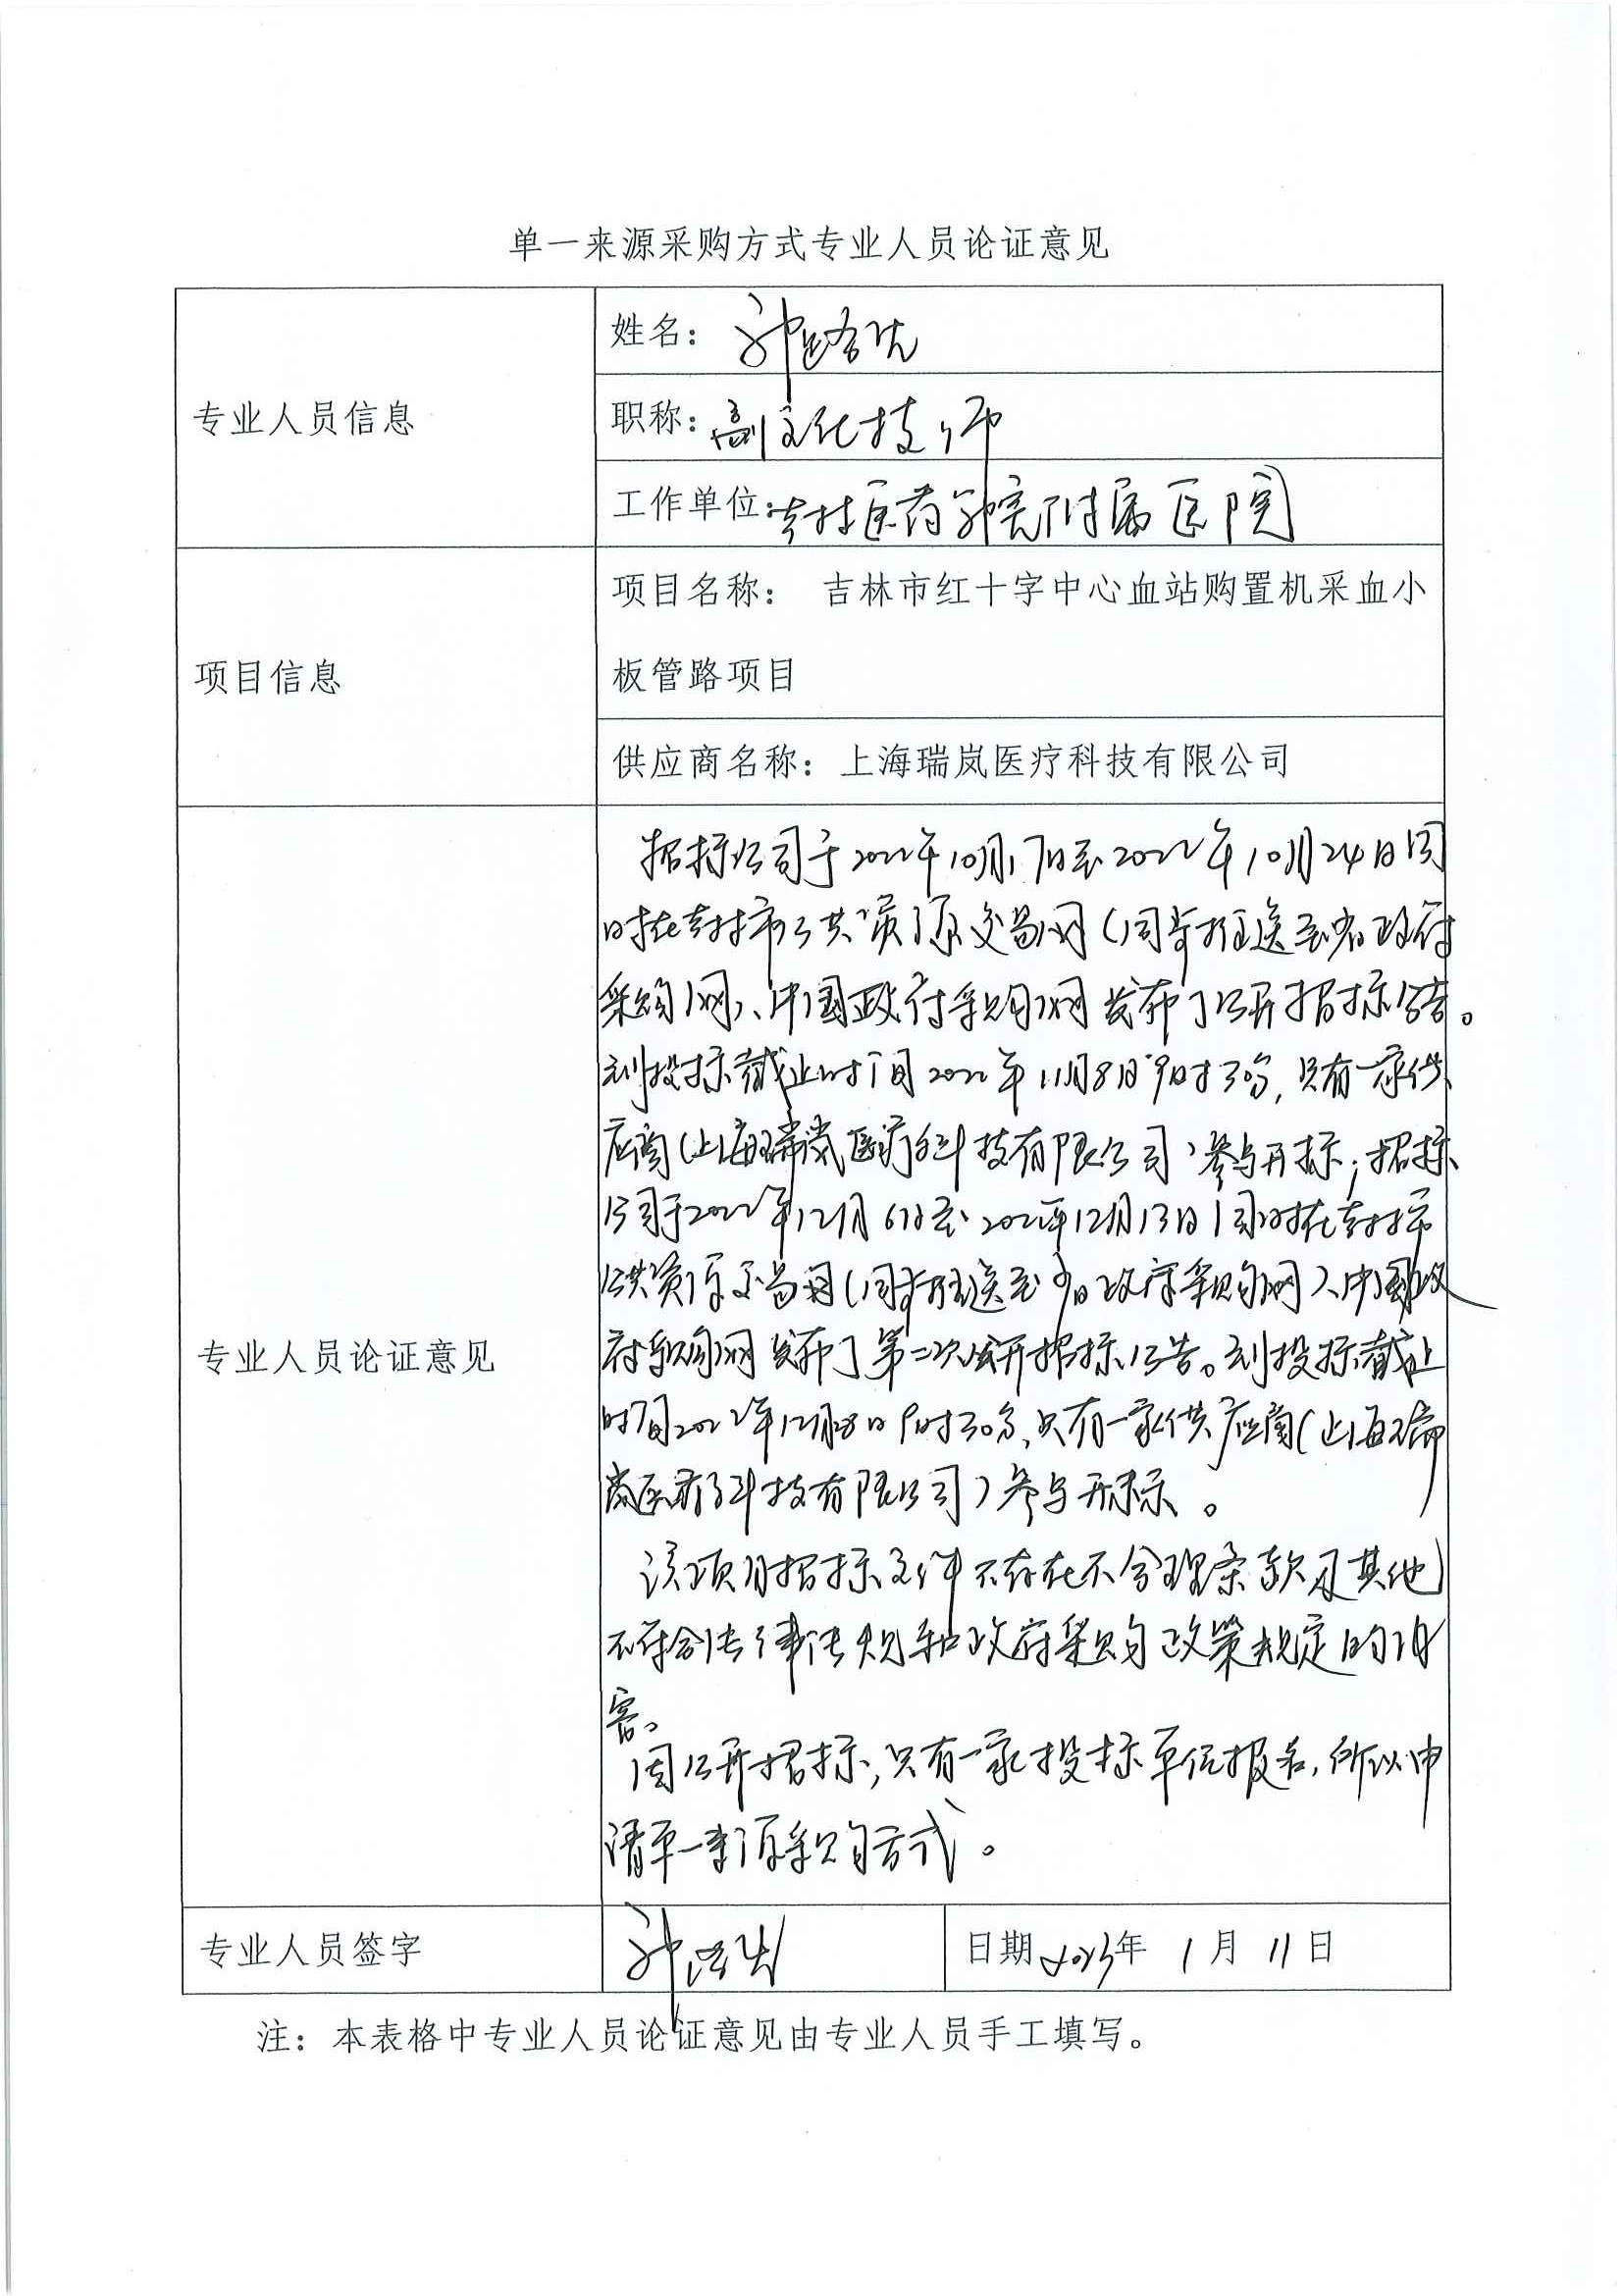 单一来源采购方式专业人员论证意见
专业人员信息
姓名：
职称：副主任技师
工作单位：吉林医药学院附属医院
项目信息
项目名称： 吉林市红十字中心血站购置机采血小
板管路项目
供应商名称：上海瑞岚医疗科技有限公司
专业人员论证意见
招标公司于2022年10月17日至2022年10月24日同
时在吉林市公共资源交易网（同步推送至省政府
采购网）、中国政府采购网发布了公开招标公告。
到投标截止时间2022年11月8日9时30分，只有一家供
应商（上海瑞岚医疗科技有限公司）参与开标；招标
公司于2022年12月6日至2022年12月13日同时在吉林市
公共资源交易网（同步推送至省政府采购网）、中国政
府采购网发布了第二次公开招标公告。到投标截止
时间2022年12月28日9时30分，只有一家供应商（上海瑞
岚医疗科技有限公司）参与开标。
该项目招标文件不存在不合理条款及其他
不符合法律法规和政府采购政策规定的内
容。
因公开招标，只有一家投标单位报名，所以申
请单一来源采购方式。
专业人员签字
日期2023年 1月 11日
注：本表格中专业人员论证意见由专业人员手工填写。